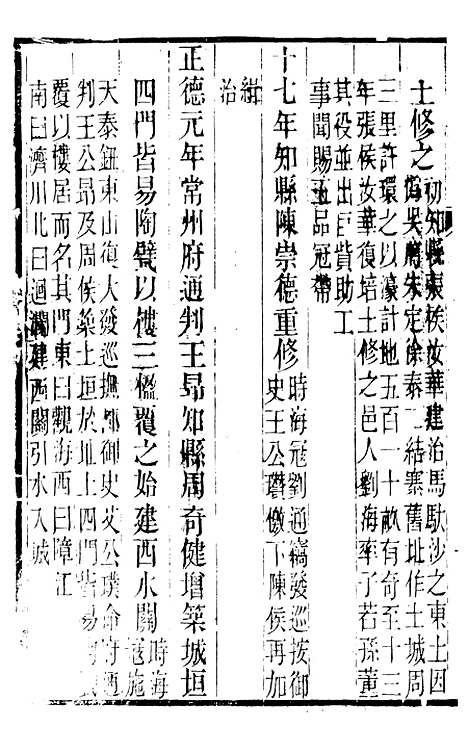 土修之初知縣張侯汝華建治馬馱沙之東土因
偽吳將朱定徐泰二結寨舊址作土城周
三里許環之以濠計地五百一十畝有奇至十三
年張侯汝華復培土修之邑人劉海率子若孫董
其役並出巨貲助工
事聞賜五品冠帶
十七年知縣陳崇德重修時海寇劉通竊發巡按御
史王公瓚檄下陳侯再加
繕
治
正德元年常州府通判王昂知縣周奇健增築城垣
四門皆易陶甓以樓三楹覆之始建西水關時海
寇施
天泰鈕東山復大發巡撫都御史艾公璞命府通
判王公昂及周侯築土垣於址上四門皆易
覆以樓居而名其門東曰觀海西曰障江
南曰濟川北曰迴瀾建西關引水入城